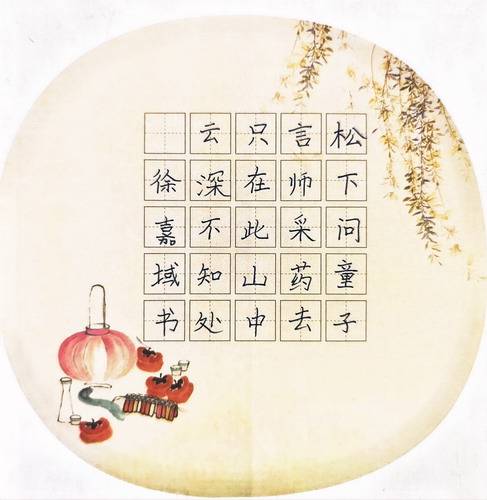 松下问童子
言师采药去
只在此山中
云深不知处
徐嘉域书